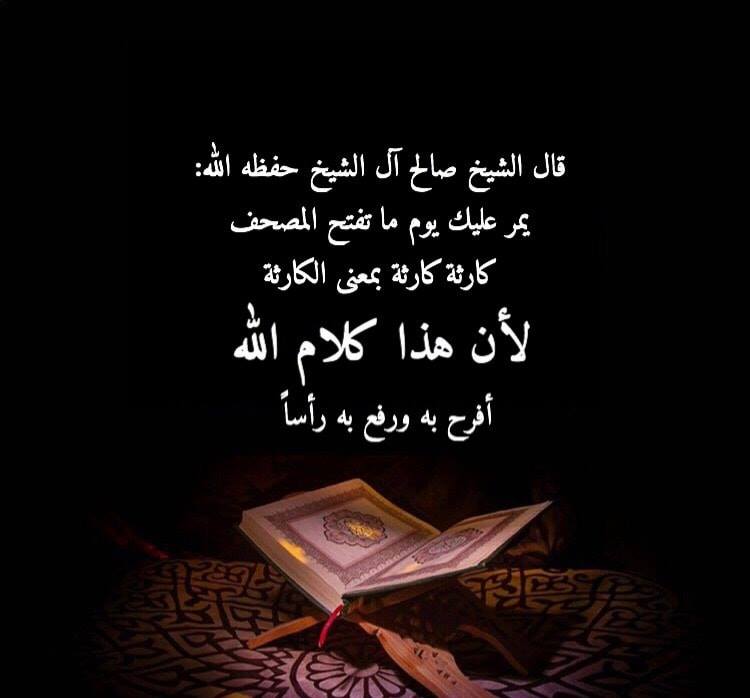 قال الشيخ صالح آل الشيخ حفظه الله:
يمر عليك يوم ما تفتح المصحف
كارثة كارثة بمعنى الكارثة
لأن هذا كلام الله
أفرح به ورفع به رأساً